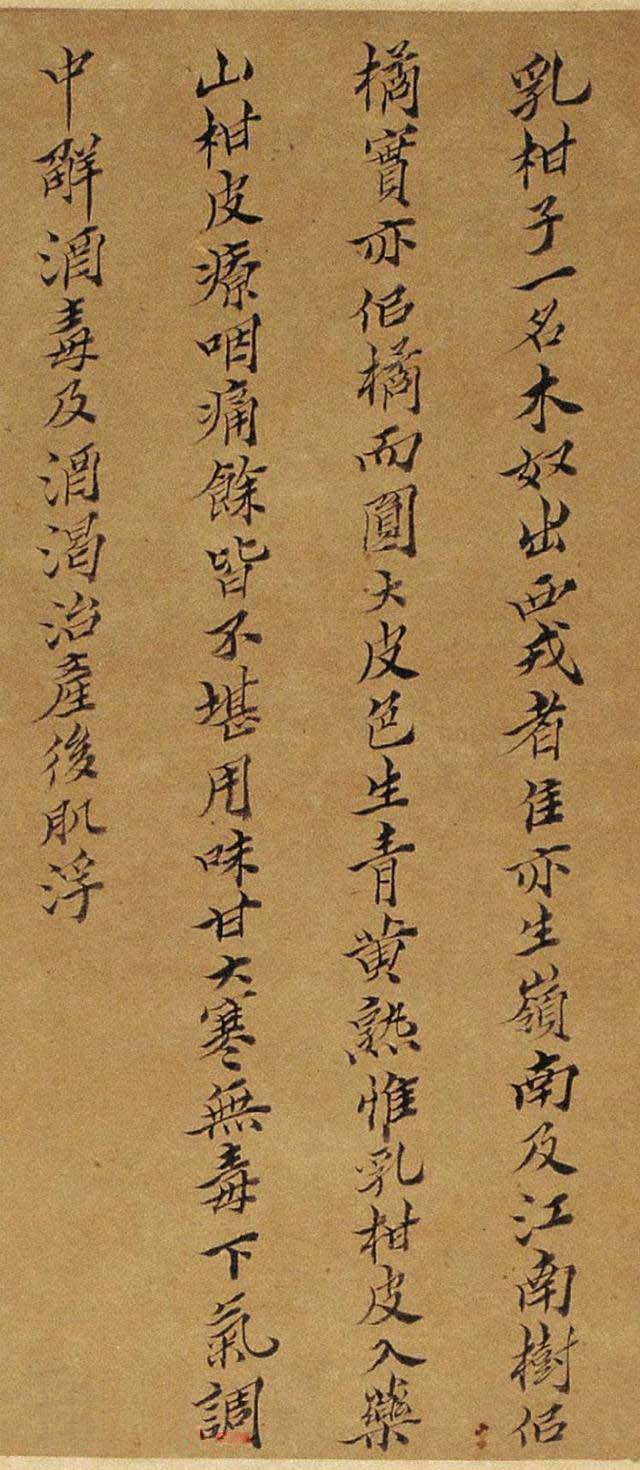 乳柑子一名木奴出西戎者佳亦生嶺南及江南樹侣
橘實亦侣橘而圓大皮色生青黄熟惟乳柑皮入藥
山柑皮療咽痛餘皆不堪用味甘大寒無毒下氣調
中解酒毒及酒渴治產後肌浮